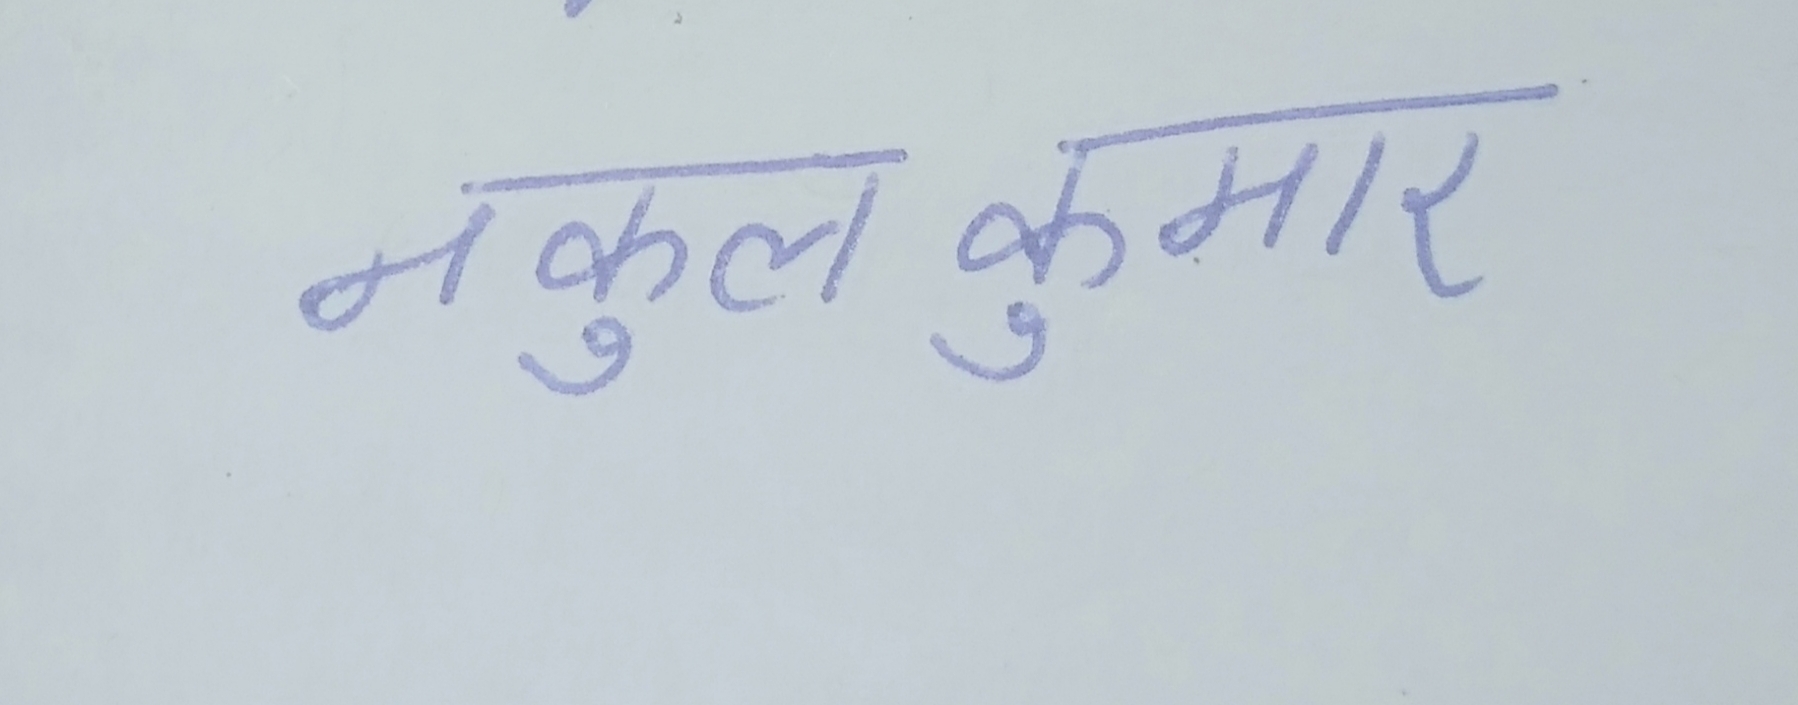 नकुल कुमार